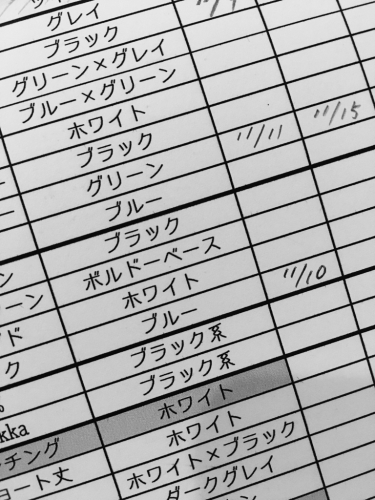 グレイ
ブラック
グリーン×グレイ
ブルー×グリーン
ホワイト
ブラック
グリーン 11/11 11/15
ブルー
ン ブラック
ーン ボルドーベース
ド ホワイト
ク ブルー 11/10
ブラック系
kka ブラック系
チング ホワイト
ョート丈 ホワイト
ホワイト×ブラック
ダークグレイ